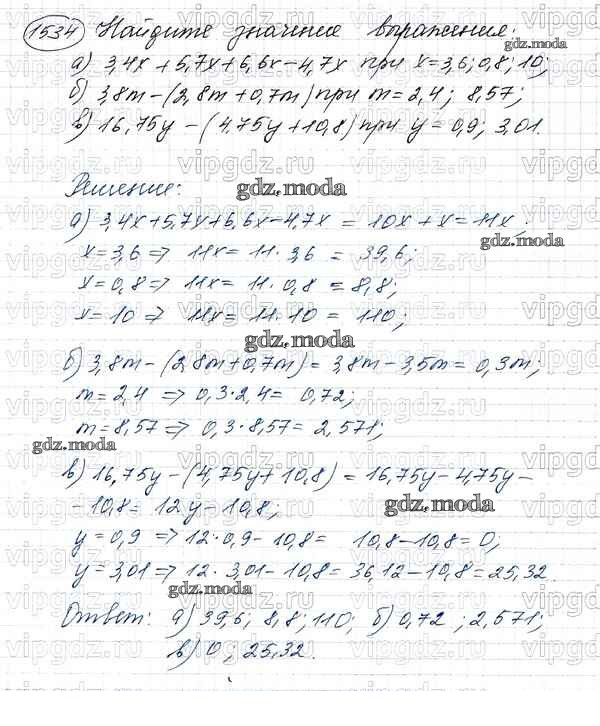 1534 Найдите значение выражения:
а) 3,4x + 5,7x + 6,6x - 4,7x при x = 3,6; 0,8; 10;
б) 3,8m - (2,8m + 0,7m) при m = 2,4; 8,57;
в) 16,75y - (4,75y + 10,8) при y = 0,9; 3,01.
Решение:
gdz.moda
а) 3,4x + 5,7x + 6,6x - 4,7x = 10x + x = 11x.
gdz.moda
x = 3,6 => 11x = 11 · 3,6 = 39,6;
x = 0,8 => 11x = 11 · 0,8 = 8,8;
x = 10 => 11x = 11 · 10 = 110;
gdz.moda
б) 3,8m - (2,8m + 0,7m) = 3,8m - 3,5m = 0,3m;
m = 2,4 => 0,3 · 2,4 = 0,72;
m = 8,57 => 0,3 · 8,57 = 2,571;
gdz.moda
в) 16,75y - (4,75y + 10,8) = 16,75y - 4,75y -
- 10,8 = 12y - 10,8;
gdz.moda
y = 0,9 => 12 · 0,9 - 10,8 = 10,8 - 10,8 = 0;
y = 3,01 => 12 · 3,01 - 10,8 = 36,12 - 10,8 = 25,32.
gdz.moda
Ответ: а) 39,6; 8,8; 110; б) 0,72; 2,571;
в) 0; 25,32.
vipgdz.ru